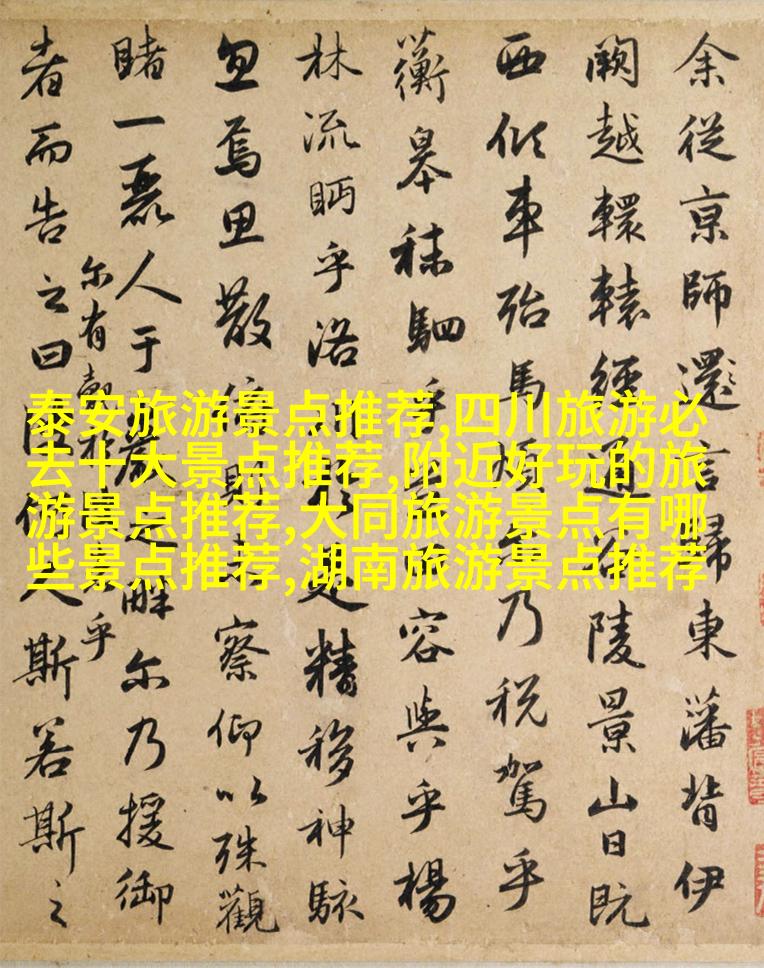 余從京師還言歸東藩背伊
闕越轘轅經通谷陵景山日既
西傾車殆馬煩乃税駕乎
蘅皋秣駟乎容與乎楊
林流眄乎洛精移神駭
忽焉思散則未察仰以殊觀
睹一麗人于巖之畔尔乃援御
者而告之曰何人斯若斯之
尔有覿於乎
泰安旅游景点推荐,四川旅游必
去十大景点推荐,附近好玩的旅
游景点推荐,大同旅游景点有哪
些景点推荐,湖南旅游景点推荐